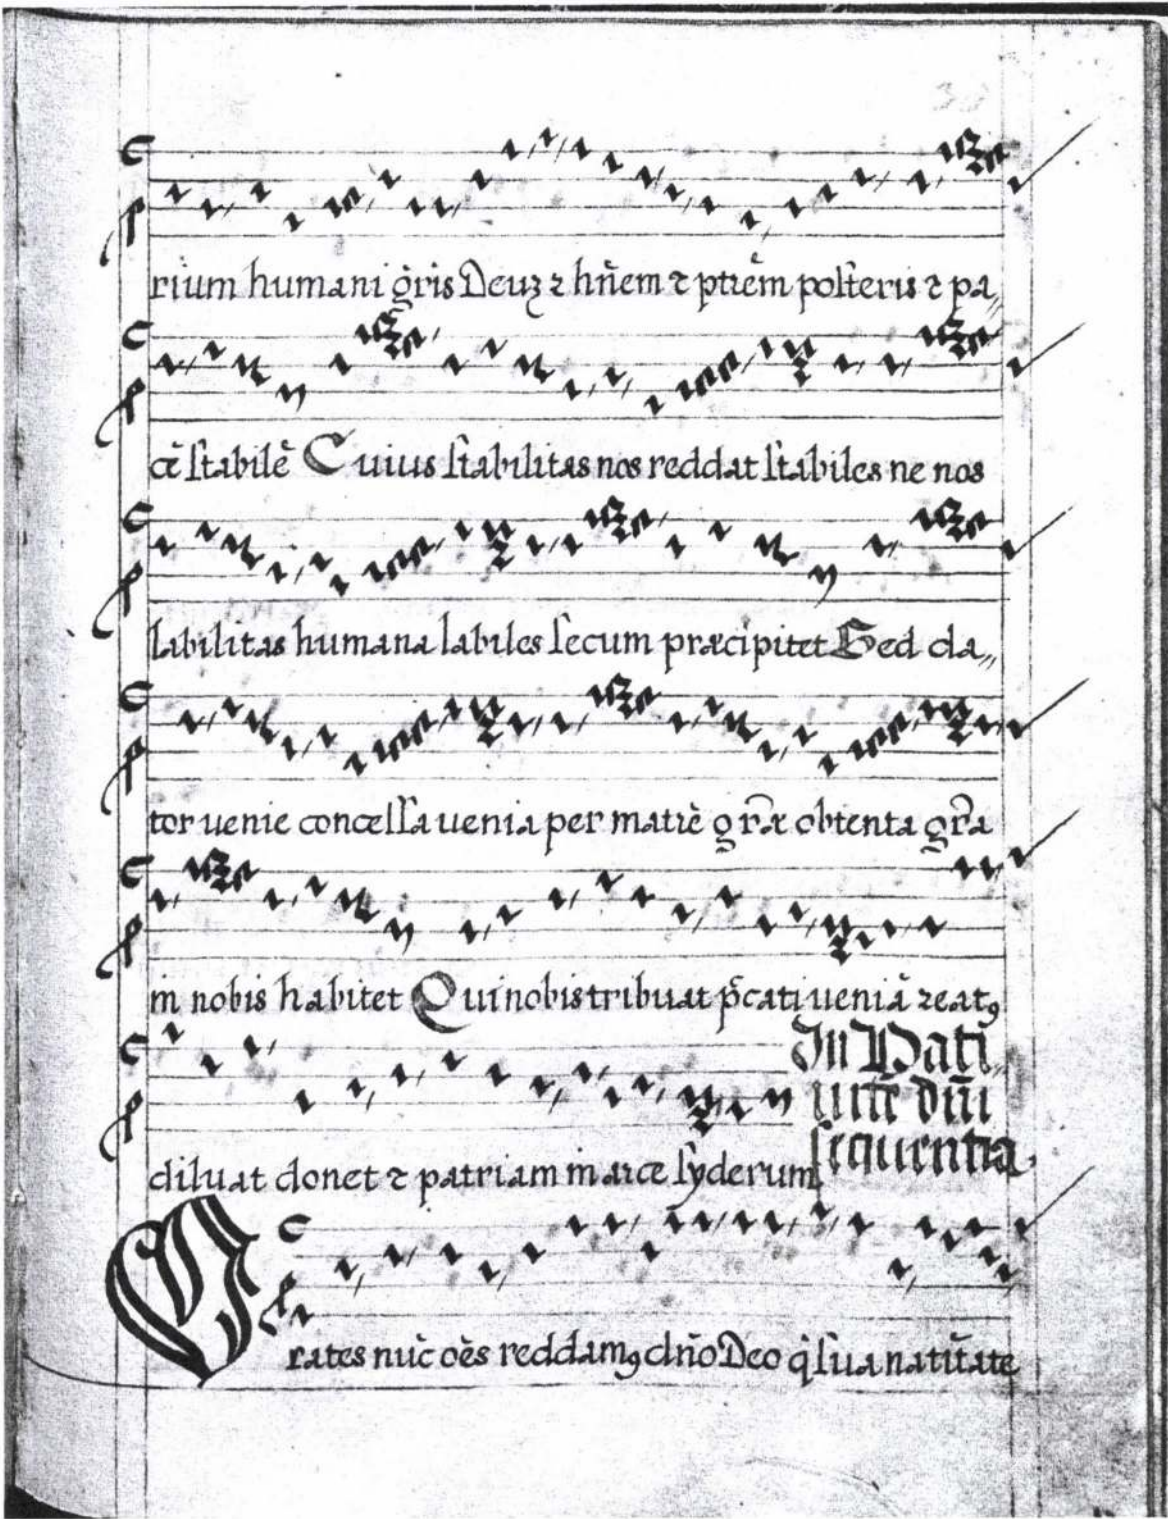 rium humani gr̄is Deuʒ ⁊ hn̄em ⁊ ptrēm posteris ⁊ pa„
cē stabilē Cuius stabilitas nos reddat stabiles ne nos
labilitas humana labiles secum præcipitet Sed da„
tor uenie concessa uenia per matrē gr̄æ obtenta gr̄a
in nobis habitet Qui nobis tribuat p̄cati ueniā reatꝯ
In Nati„
uitē dn̄i
sequentia.
diluat donet ⁊ patriam in arce syderum
Grates nūc oēs reddamꝯ dn̄o Deo q̇ sua natiūtate